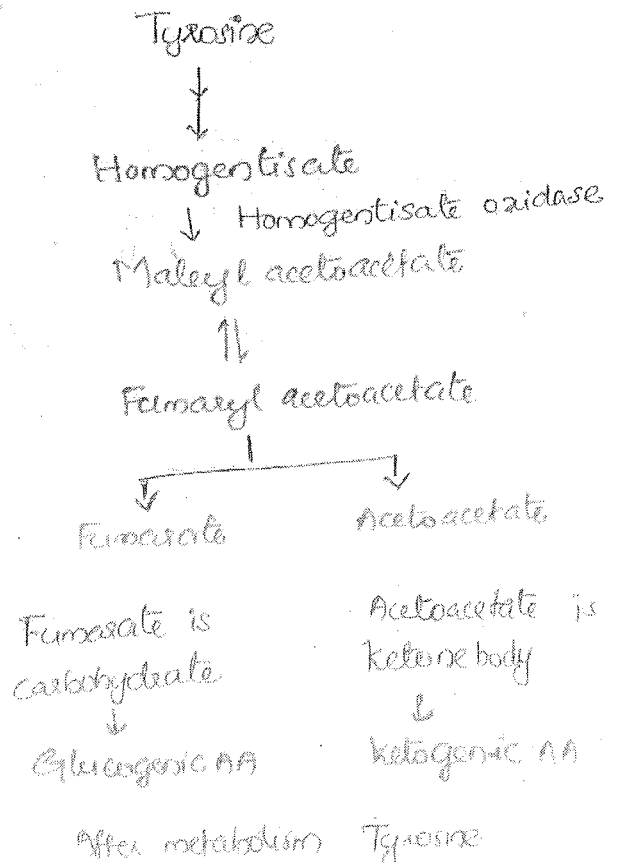 Tyrosine
Homogentisate
Homogentisate oxidase
Maleyl acetoacetate
Fumaryl acetoacetate
Fumarate
Acetoacetate
Fumarate is
carbohydrate
Glucogenic AA
Acetoacetate is
ketone body
ketogenic AA
After metabolism Tyrosine